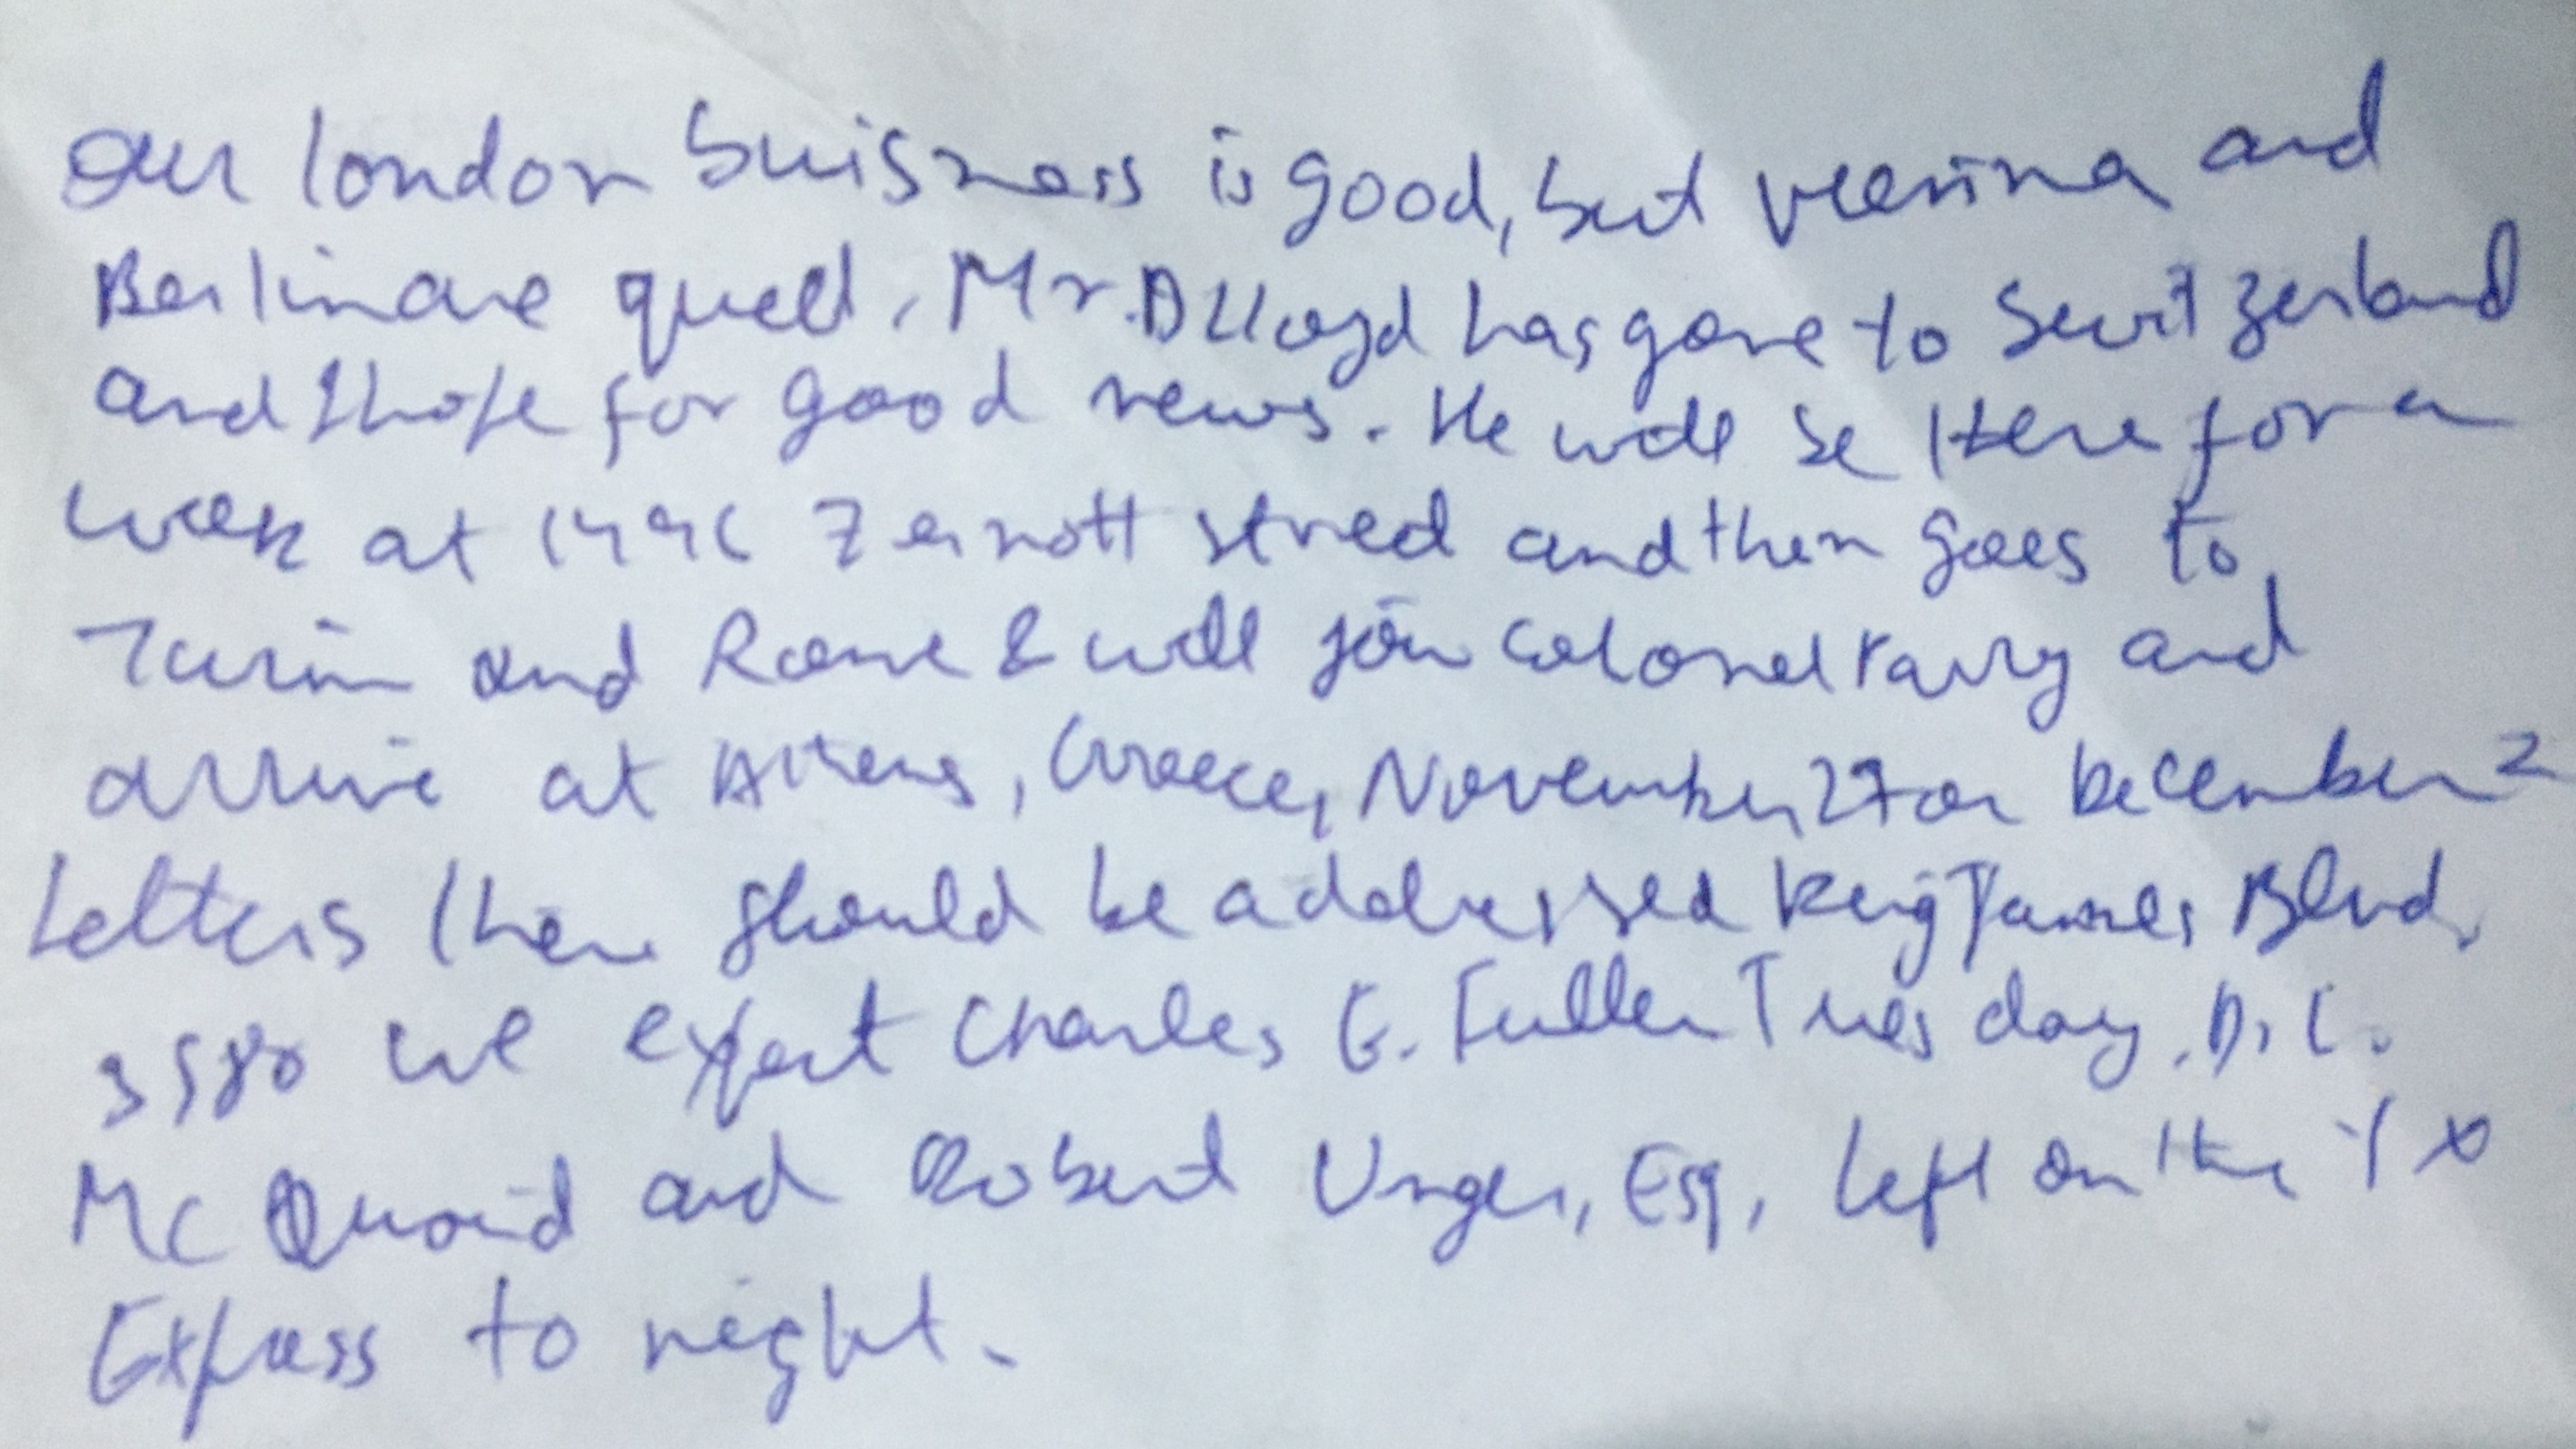 Our london buisness is good, but vienna and
Berlin are quiet. Mr. D Lloyd has gone to Switzerland
and I hope for good news. He will be there for a
week at 1496 Zermott street and then goes to
Turin and Rome & will join Colonel Parry and
arrive at Athens, Greece, November 27 or December 2
Letters there should be addressed King James Blvd.
3580 we expect Charles E. Fuller Tuesday. Dr. L.
Mc Quaid and Robert Unger, Esq, left on the
Express to night.